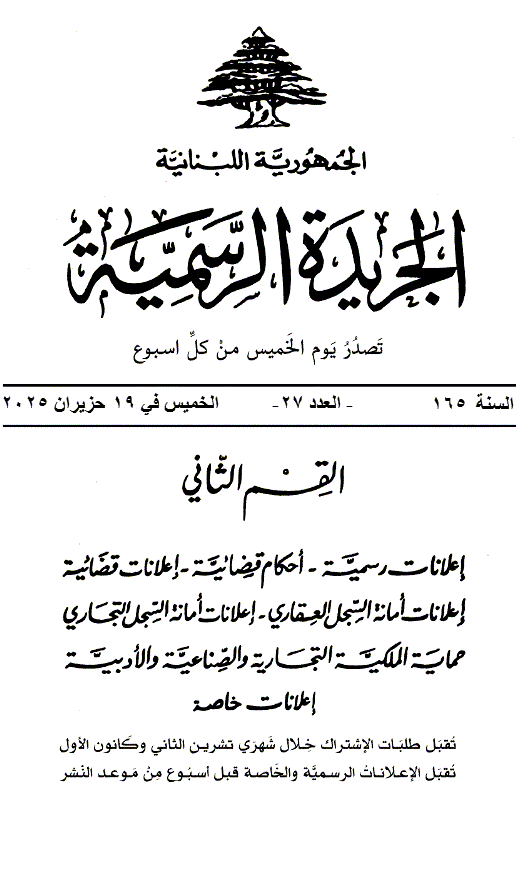 الجُمهُوريَّة اللبْنانيَّة
الجَريدَة الرسَميَّة
تَصدُرُ يَوم الخَميس منْ كلِّ اسبوع
السنة ١٦٥ - العدد ٢٧- الخميس في ١٩ حزيران ٢٠٢٥
القِسْم الثّاني
إعلانات رسميَّة - أحكام قضائيَّة - إعلانات قضائية
إعلانات أمانة السّجل العقاري - إعلانات أمانة السّجل التجاري
حماية الملكيَّة التجارية والصّناعيَّة والأدبيَّة
إعلانات خاصة
تُقبَل طلبَات الإشتراك خِلال شَهرَي تشرين الثاني وكَانون الأول
تُقبَل الإعلاناتُ الرسميَّة والخَاصة قبل أسبُوع مِنْ مَوعد النَشر